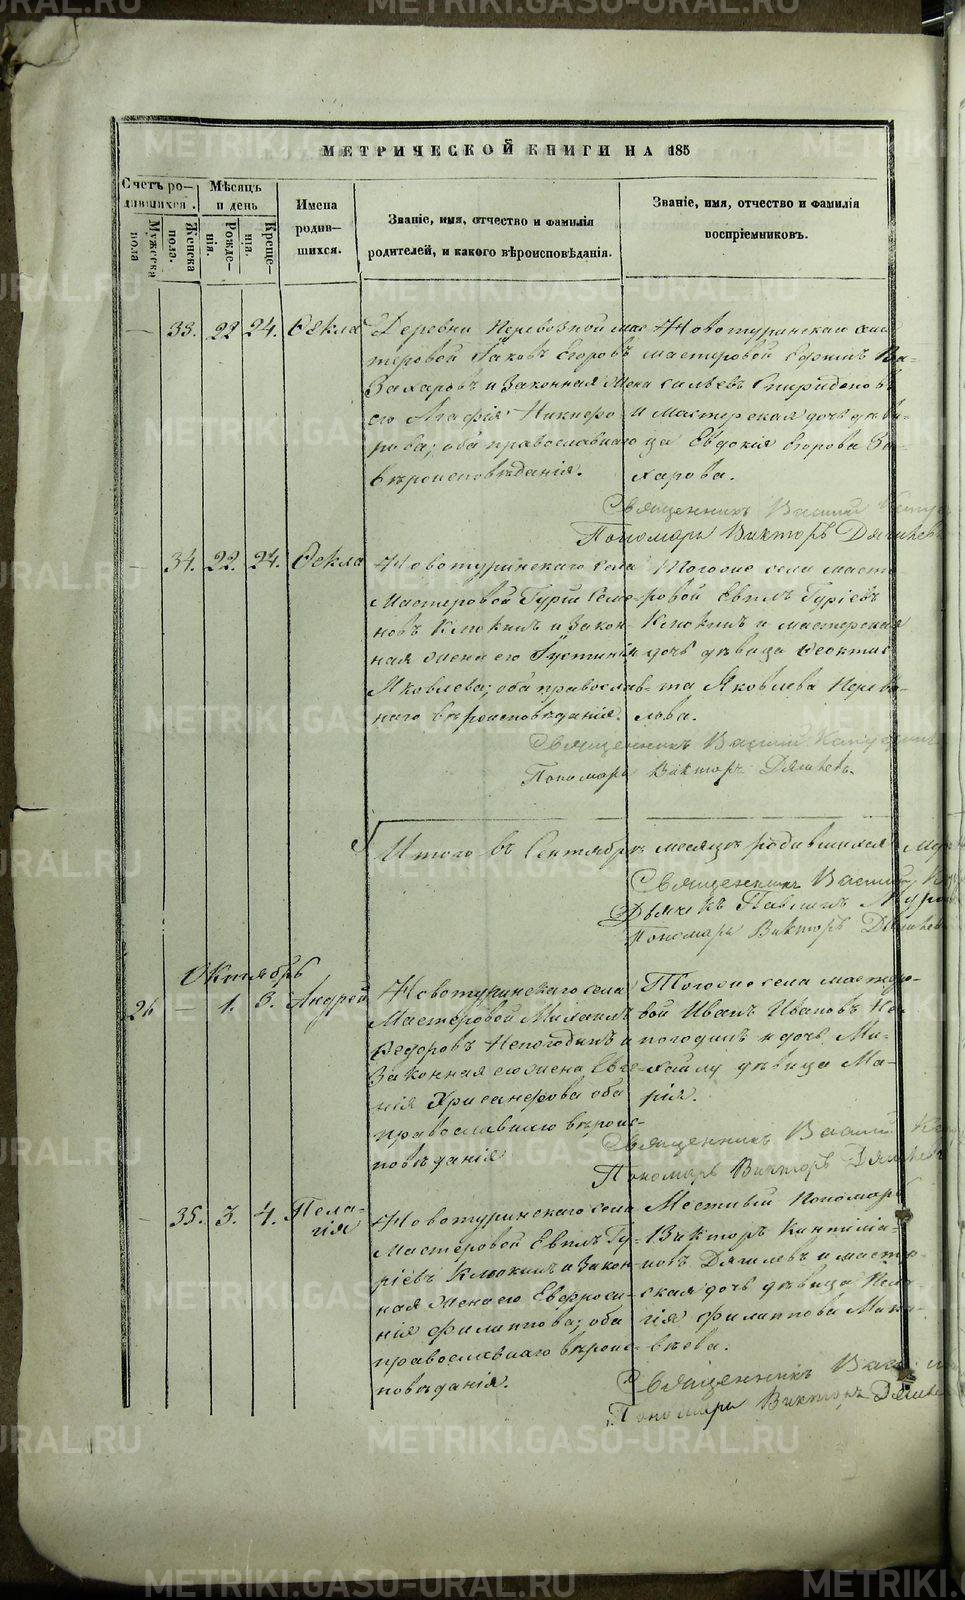 МЕТРИЧЕСКОЙ КНИГИ НА 185
Счетъ ро-
дившихся.
Мужеска
пола
Женска
пола.
Мѣсяцъ
и день
Рожде-
нія.
Креще-
нія.
Имена
родив-
шихся.
Званіе, имя, отчество и фамилія
родителей, и какого вѣроисповѣданія.
Званіе, имя, отчество и фамилія
воспріемниковъ.
— 33. 22 24. Ѳекла
Деревни Перевозной мас-
теровой Іаковъ Егоровъ
Захаровъ и законная жена
его Агафія Никифо-
рова; оба православнаго
вѣроисповѣданія.
Новотуринскаго села
мастеровой Ефимъ Ва-
сильевъ Спиридоновъ
и мастерская дочь дѣви-
ца Евдокія Егорова За-
харова.
Священникъ Василій
Пономарь Викторъ Дягилевъ
— 34. 22. 24. Ѳекла
Новотуринскаго села
Мастеровой Гурій Семе-
новъ Клюкинъ и закон-
ная жена его Іустинія
Яковлева; оба православ-
наго вѣроисповѣданія.
Тогоже села масте-
ровой Евплъ Гуріевъ
Клюкинъ и мастерская
дочь дѣвица Ѳеоктис-
та Яковлева Перева-
лова.
Священникъ Василій
Пономарь Викторъ Дягилевъ.
Итого въ Сентябрѣ месяцѣ родившихся
Священникъ Василій
Дьячекъ Павлинъ
Пономарь Викторъ Дягилевъ
Октябрь
26 — 1. 3. Андрей
Новотуринскаго села
Мастеровой Михаилъ
Ѳедоровъ Непогодинъ и
Законная его жена Евге-
нія Хрисанфова оба
православнаго вѣроис-
повѣданія
Тогоже села мастеро-
вой Иванъ Ивановъ Не-
погодинъ и дочь Ми-
хайлу дѣвица Ма-
рія.
Священникъ Василій
Пономарь Викторъ Дягилевъ
— 35. 3. 4. Пела-
гія
Новотуринскаго села
Мастеровой Евплъ Гу-
ріевъ Клюкинъ и закон-
ная жена его Евфроси-
нія Филиппова; оба
православнаго вѣроис-
повѣданія.
Местный Пономарь
Викторъ Кинтиліа-
новъ Дягилевъ и масте-
рская дочь дѣвица Пела-
гія Филиппова Мат-
вѣева.
Священникъ Василій
Пономарь Викторъ Дягилевъ
METRIKI.GASO-URAL.RU